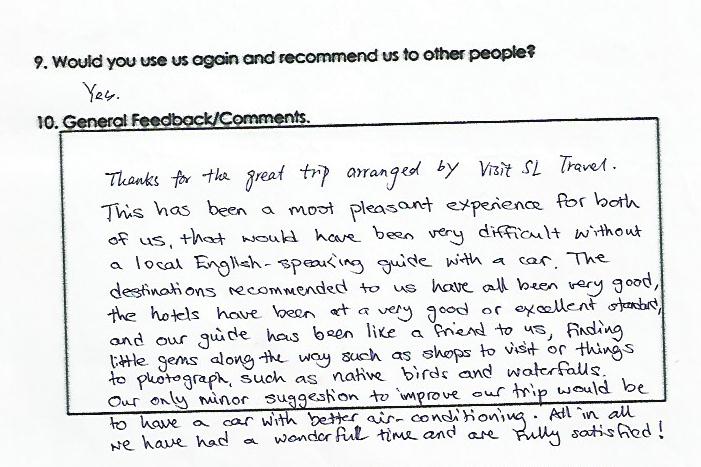 9. Would you use us again and recommend us to other people?
Yes.
10. General Feedback/Comments.
Thanks for the great trip arranged by Visit SL Travel.
This has been a most pleasant experience for both
of us, that would have been very difficult without
a local English-speaking guide with a car. The
destinations recommended to us have all been very good,
the hotels have been at a very good or excellent standard,
and our guide has been like a friend to us, finding
little gems along the way such as shops to visit or things
to photograph, such as native birds and waterfalls.
Our only minor suggestion to improve our trip would be
to have a car with better air-conditioning. All in all
we have had a wonderful time and are fully satisfied!